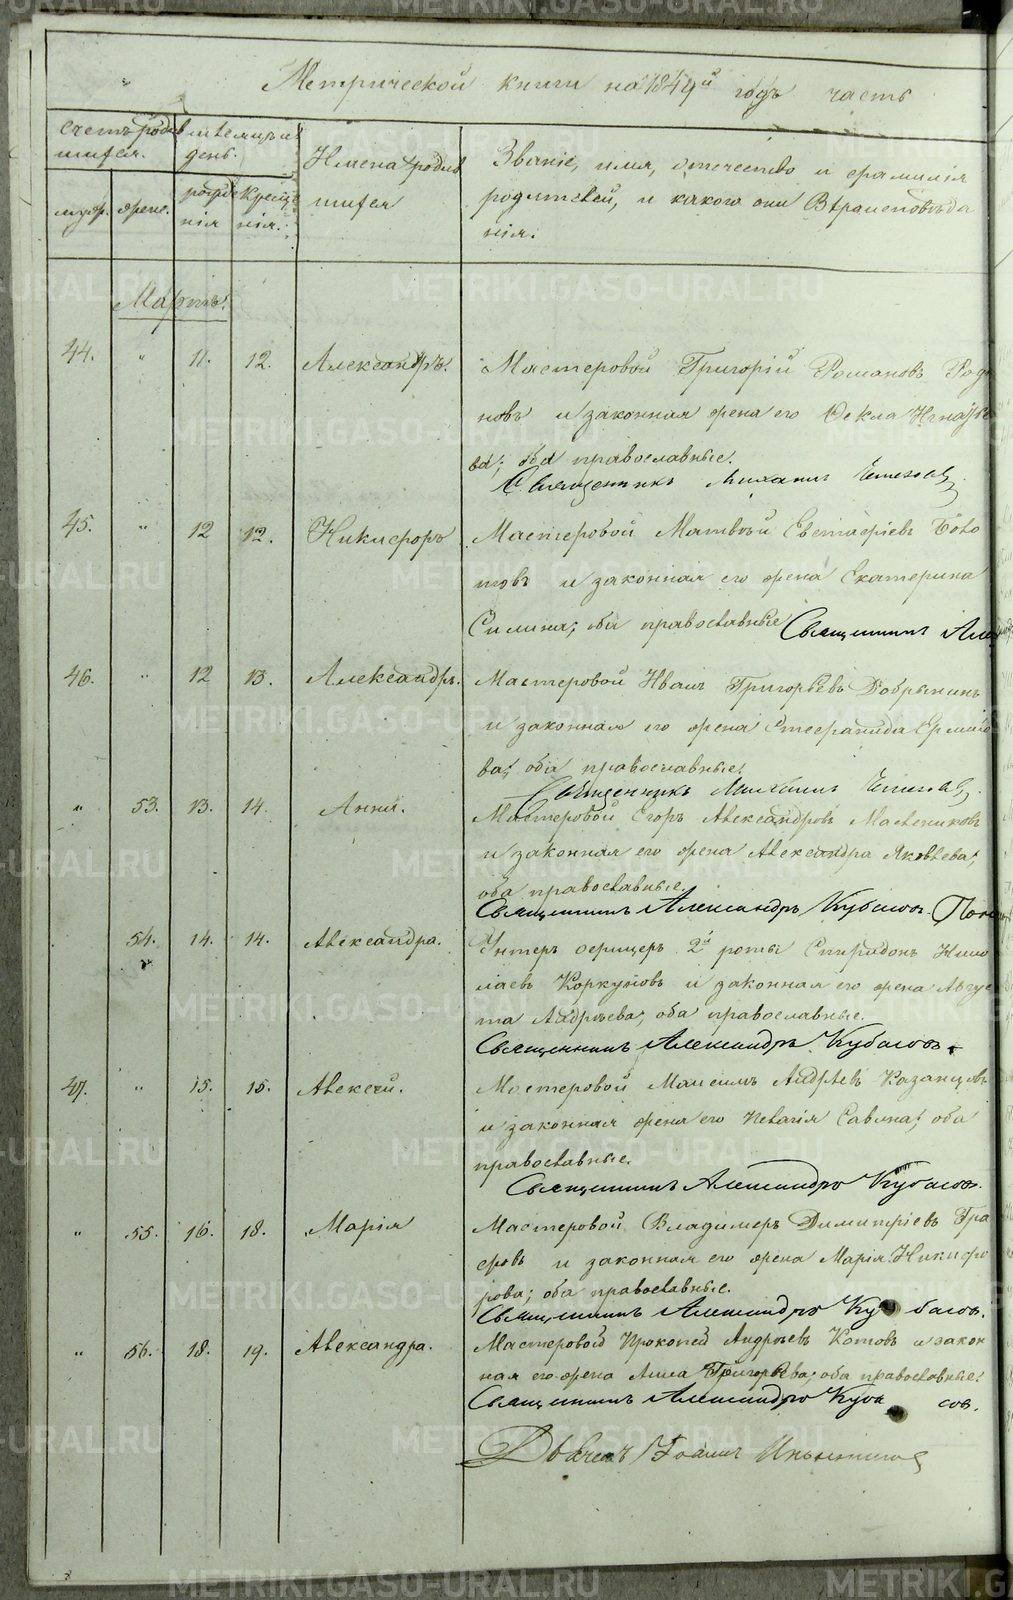 Метрической книги на 1849й годъ часть
Счетъ родив
шихся.
муж. женс.
Мѣсяцъ и
день.
рожде
нія
креще
нія.
Имена родив
шихся
Званіе, имя, отечество и фамилія
родителей, и какого они Вѣроисповѣда
нія.
Мартъ.
44. " 11. 12. Александръ. Мастеровой Григорій Романовъ Роди
новъ и законная жена его Ѳекла Игнатье
ва; оба православные.
Священникъ Михаилъ
45. " 12 12. Никифоръ Мастеровой Матвѣй Евстафіевъ
товъ и законная его жена Екатерина
Силина; оба православные Священникъ Алек
46. " 12 13. Александръ. Мастеровой Иванъ Григорьевъ Добрынинъ
и законная его жена Стефанида Ермило
ва; оба православные.
Священникъ Михаилъ
" 53. 13. 14. Анна. Мастеровой Егоръ Александровъ Масленниковъ
и законная его жена Александра Яковлева;
оба православные.
Священникъ Александръ Кубасовъ.
54. 14. 14. Александра. Унтеръ офицеръ 2й роты Спиридонъ Нико
лаевъ Коркуновъ и законная его жена Авгус
та Андреева; оба православные.
Священникъ Александръ Кубасовъ.
47. " 15. 15. Алексѣй. Мастеровой Максимъ Андреевъ Казанцовъ
и законная жена его Пелагія Савина; оба
православные.
Священникъ Александръ Кубасовъ.
" 55. 16. 18. Марія Мастеровой Владимеръ Димитріевъ Гра
фовъ и законная его жена Марія Никифо
рова; оба православные.
Священникъ Александръ Кубасовъ.
" 56. 18. 19. Александра. Мастеровой Прокопей Андреевъ Котовъ и закон
ная его жена Анна Григорьева; оба православные.
Священникъ Александръ Кубасовъ.
Дьячекъ Іоаннъ
METRIKI.GASO-URAL.RU